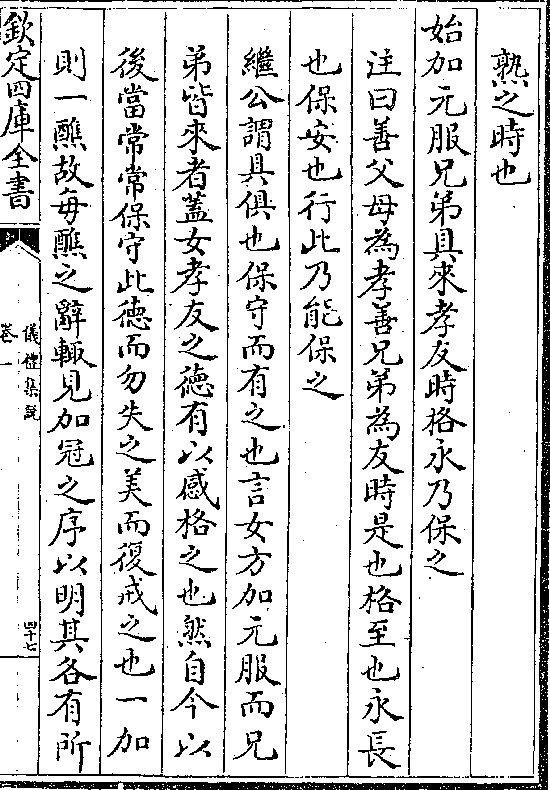 熟之時也
始加元服兄弟具來孝友時格永乃保之
注曰善父母為孝善兄弟為友時是也格至也永長
也保安也行此乃能保之
繼公謂具俱也保守而有之也言女方加元服而兄
弟皆來者蓋女孝友之徳有以感格之也然自今以
後當常常保守此徳而勿失之美而復戒之也一加
則一醮故毎醮之辭輙見加冠之序以明其各有所
欽定四庫全書
儀禮集說
卷一
四十七